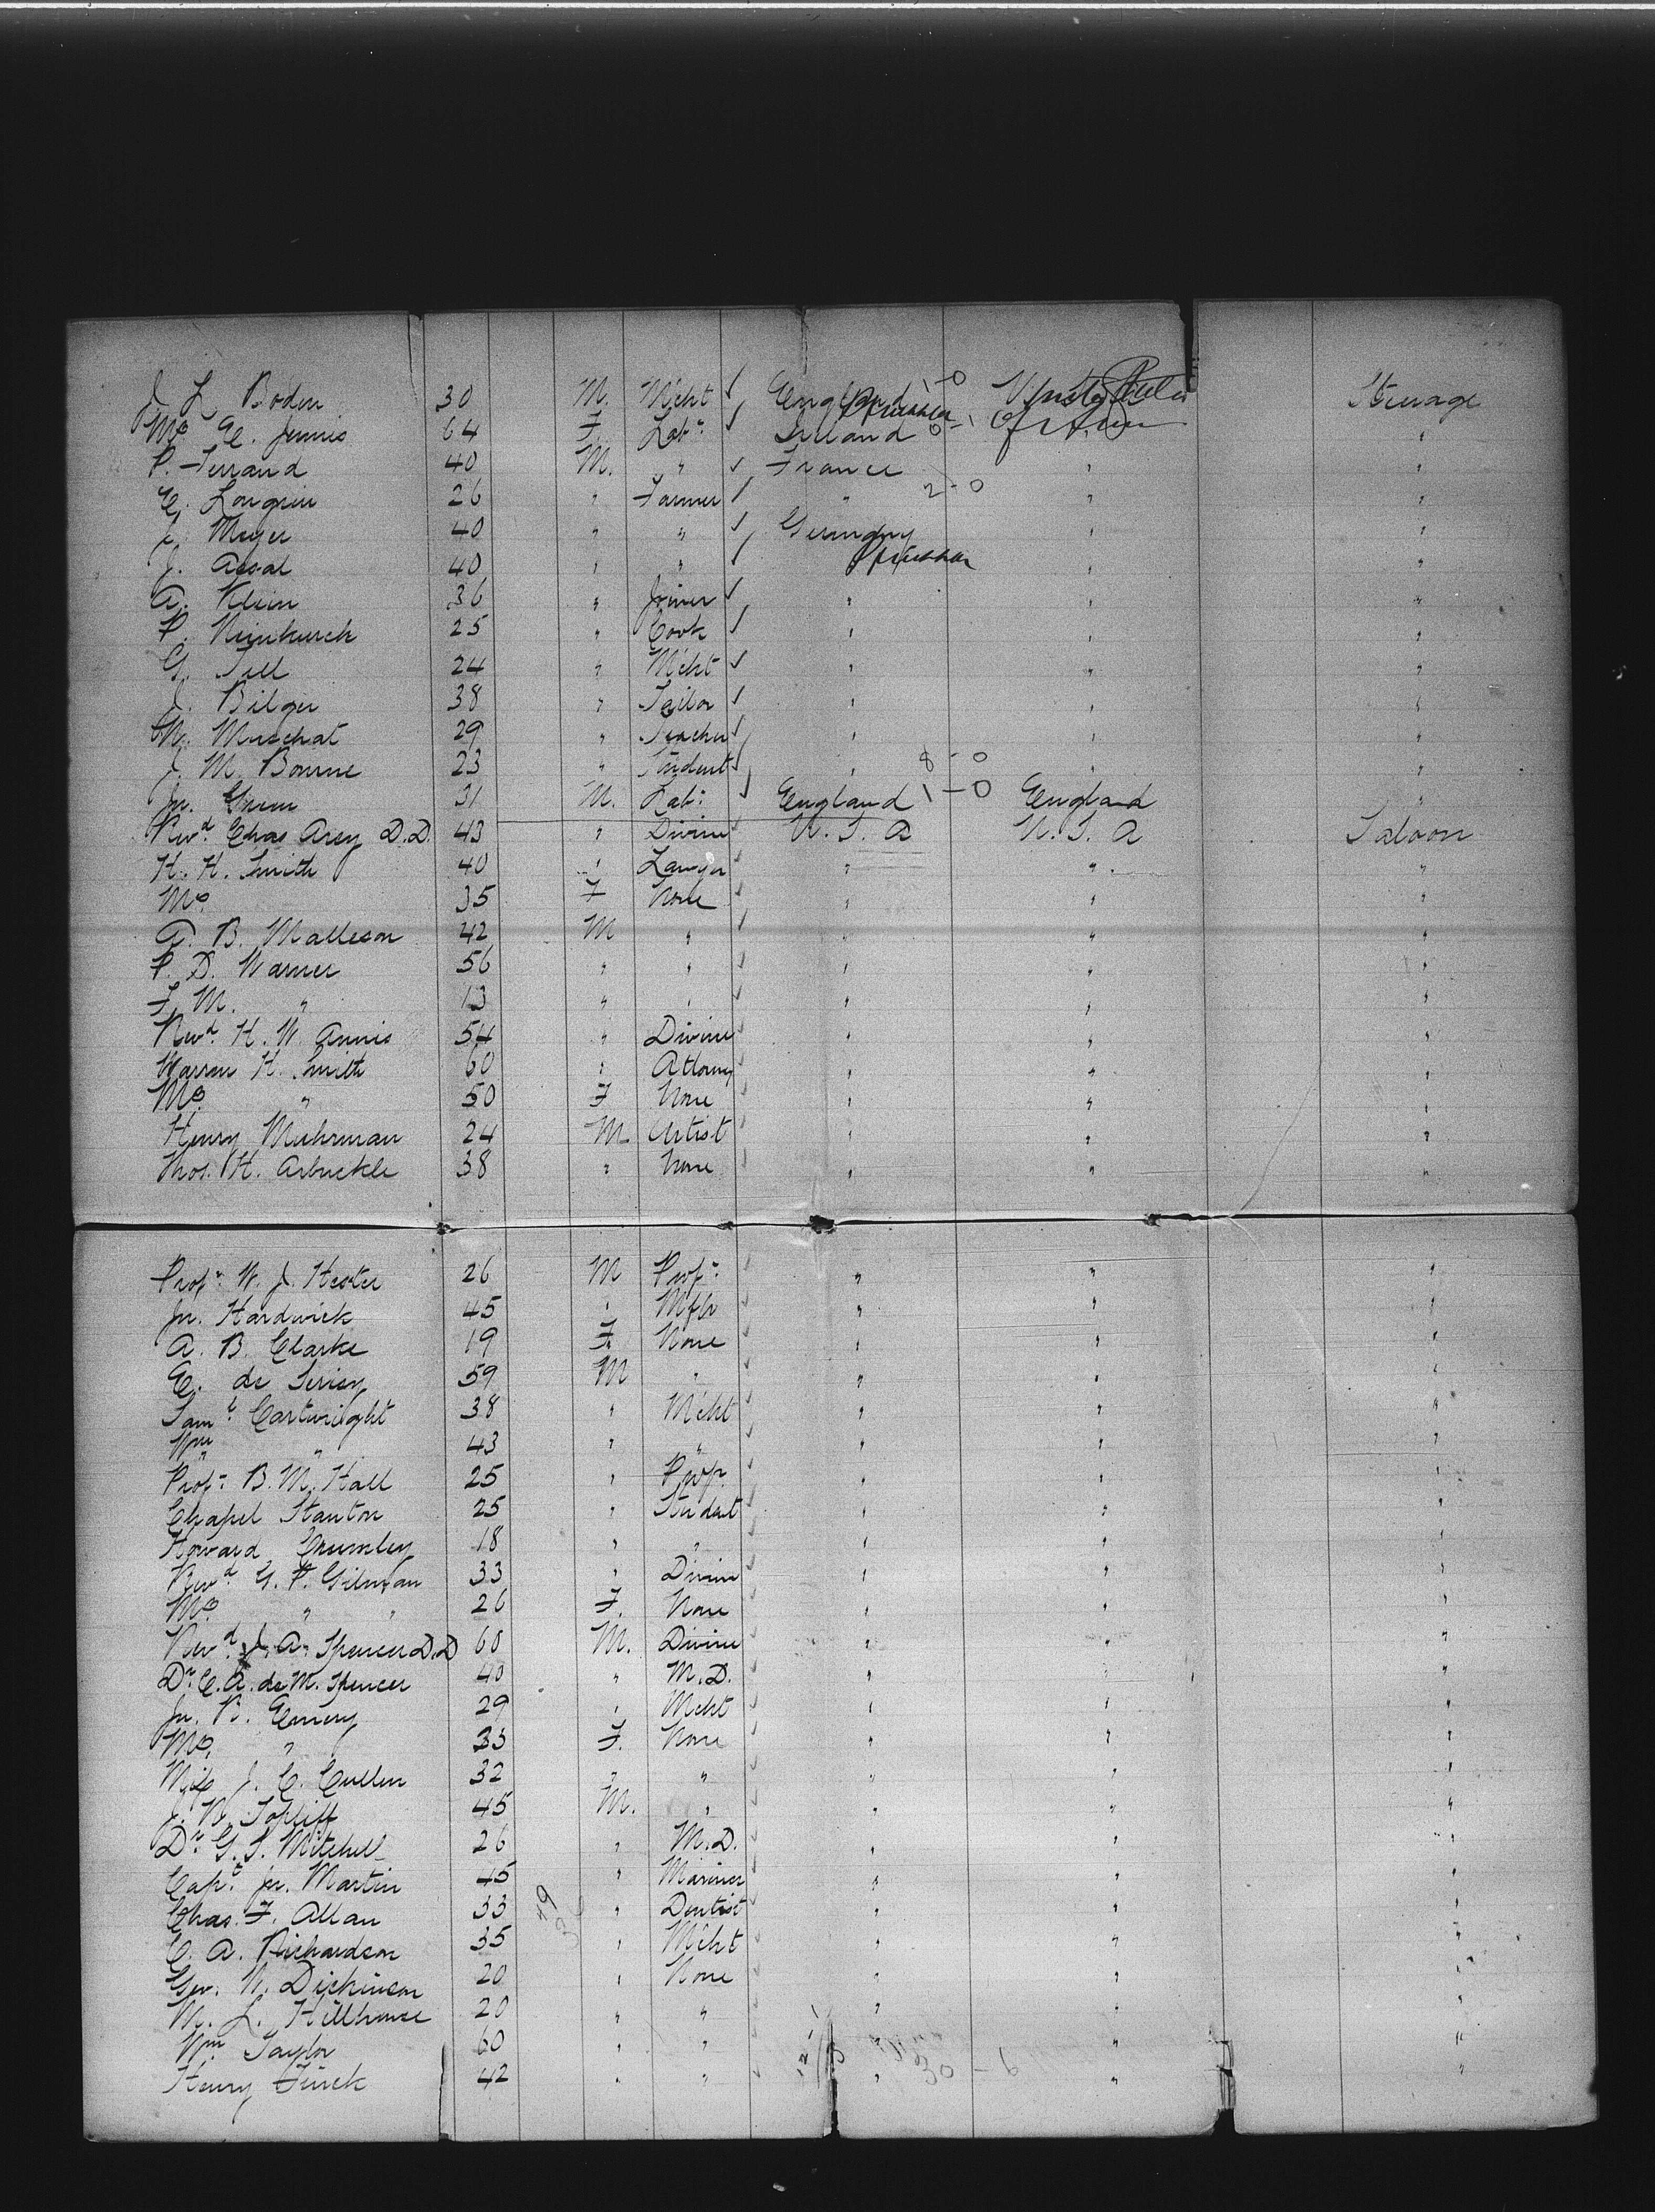 J. L. Boden 30 M. Mcht ✓ England 1-0 United States Steerage
Mrs E. Jennis 64 F. Labr ✓ Ireland 0-1 of Am "
P. Ferrand 40 M. " ✓ France " "
E. Longpin 26 " Farmer ✓ " 2-0 " "
J. Meyer 40 " " ✓ Germany " "
J. Assal 40 " " ✓ Prussia " "
A. Klein 36 " Joiner ✓ " " "
P. Neinkurch 25 " Cook ✓ " " "
G. Sell 24 " Mcht ✓ " " "
J. Bilger 38 " Tailor ✓ " " "
M. Muschat 29 " Teacher ✓ " " "
J. M. Bourne 23 " Student ✓ " 8-0 " "
Jn. Green 31 M. Labr ✓ England 1-0 England "
Revd. Chas Arey D.D. 43 " Divine ✓ U.S.A U.S.A Saloon
H. H. Smith 40 " Lawyer ✓ " " "
Mrs. 35 F None ✓ " " "
A. B. Malleson 42 M " ✓ " " "
P. D. Warner 56 " " ✓ " " "
F. M. " 13 " " ✓ " " "
Revd. H. W. Annis 54 " Divine ✓ " " "
Warren H. Smith 60 " Attorney ✓ " " "
Mrs. " 50 F None ✓ " " "
Henry Muhrman 24 M Artist ✓ " " "
Thos. H. Arbuckle 38 " None ✓ " " "
Profr. W. J. Hester 26 M Profr. ✓ " " "
Jn. Hardwick 45 " Mfr ✓ " " "
A. B. Clarke 19 F. None ✓ " " "
E. de 59 M " ✓ " " "
Saml. Cartwright 38 " Mcht ✓ " " "
Wm " 43 " " ✓ " " "
Profr. B. M. Hall 25 " Profr. ✓ " " "
Chapel Stanton 25 " Student ✓ " " "
Howard Crumley 18 " " ✓ " " "
Revd. G. P. Gilman 33 " Divine ✓ " " "
Mrs. " " 26 F. None ✓ " " "
Revd. J. A. Spencer D.D 60 M. Divine ✓ " " "
Dr. C. A. de M. Spencer 40 " M.D. ✓ " " "
Jn. R. Emery 29 " Mcht ✓ " " "
Mrs. " 33 F. None ✓ " " "
Miss J. C. Cullen 32 " " ✓ " " "
J. B. Topliff 45 M. " ✓ " " "
Dr. G. S. Mitchell 26 " M.D. ✓ " " "
Capt. Jn. Martin 45 " Mariner ✓ " " "
Chas. F. Allan 33 " Dentist ✓ " " "
C. A. Richardson 35 " Mcht ✓ " " "
Geo. W. Dickinson 20 " None ✓ " " "
W. L. Hillhouse 20 " " ✓ " " "
Wm Taylor 60 " " ✓ " " "
Henry Finck 42 " " ✓ " 30-6 " "